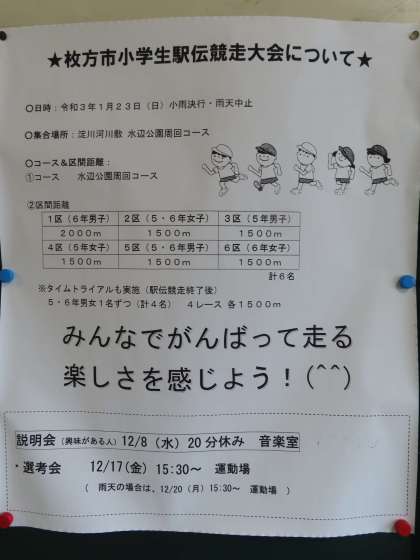 ★枚方市小学生駅伝競走大会について★
○日時：令和３年１月２３日（日）小雨決行・雨天中止
○集合場所：淀川河川敷 水辺公園周回コース
○コース＆区間距離：
①コース　水辺公園周回コース
②区間距離
１区（６年男子） ２区（５・６年女子） ３区（５年男子）
２０００ｍ １５００ｍ １５００ｍ
４区（５年女子） ５区（５・６年男子） ６区（６年女子）
１５００ｍ １５００ｍ １５００ｍ
計６名
※タイムトライアルも実施（駅伝競走終了後）
５・６年男女１名ずつ（計４名）　４レース 各１５００ｍ
みんなでがんばって走る
楽しさを感じよう！(^^)
説明会（興味がある人）12/8（水）20分休み　音楽室
・選考会　12/17(金) 15:30～　運動場
（ 雨天の場合は、12/20（月）15:30～　運動場 ）